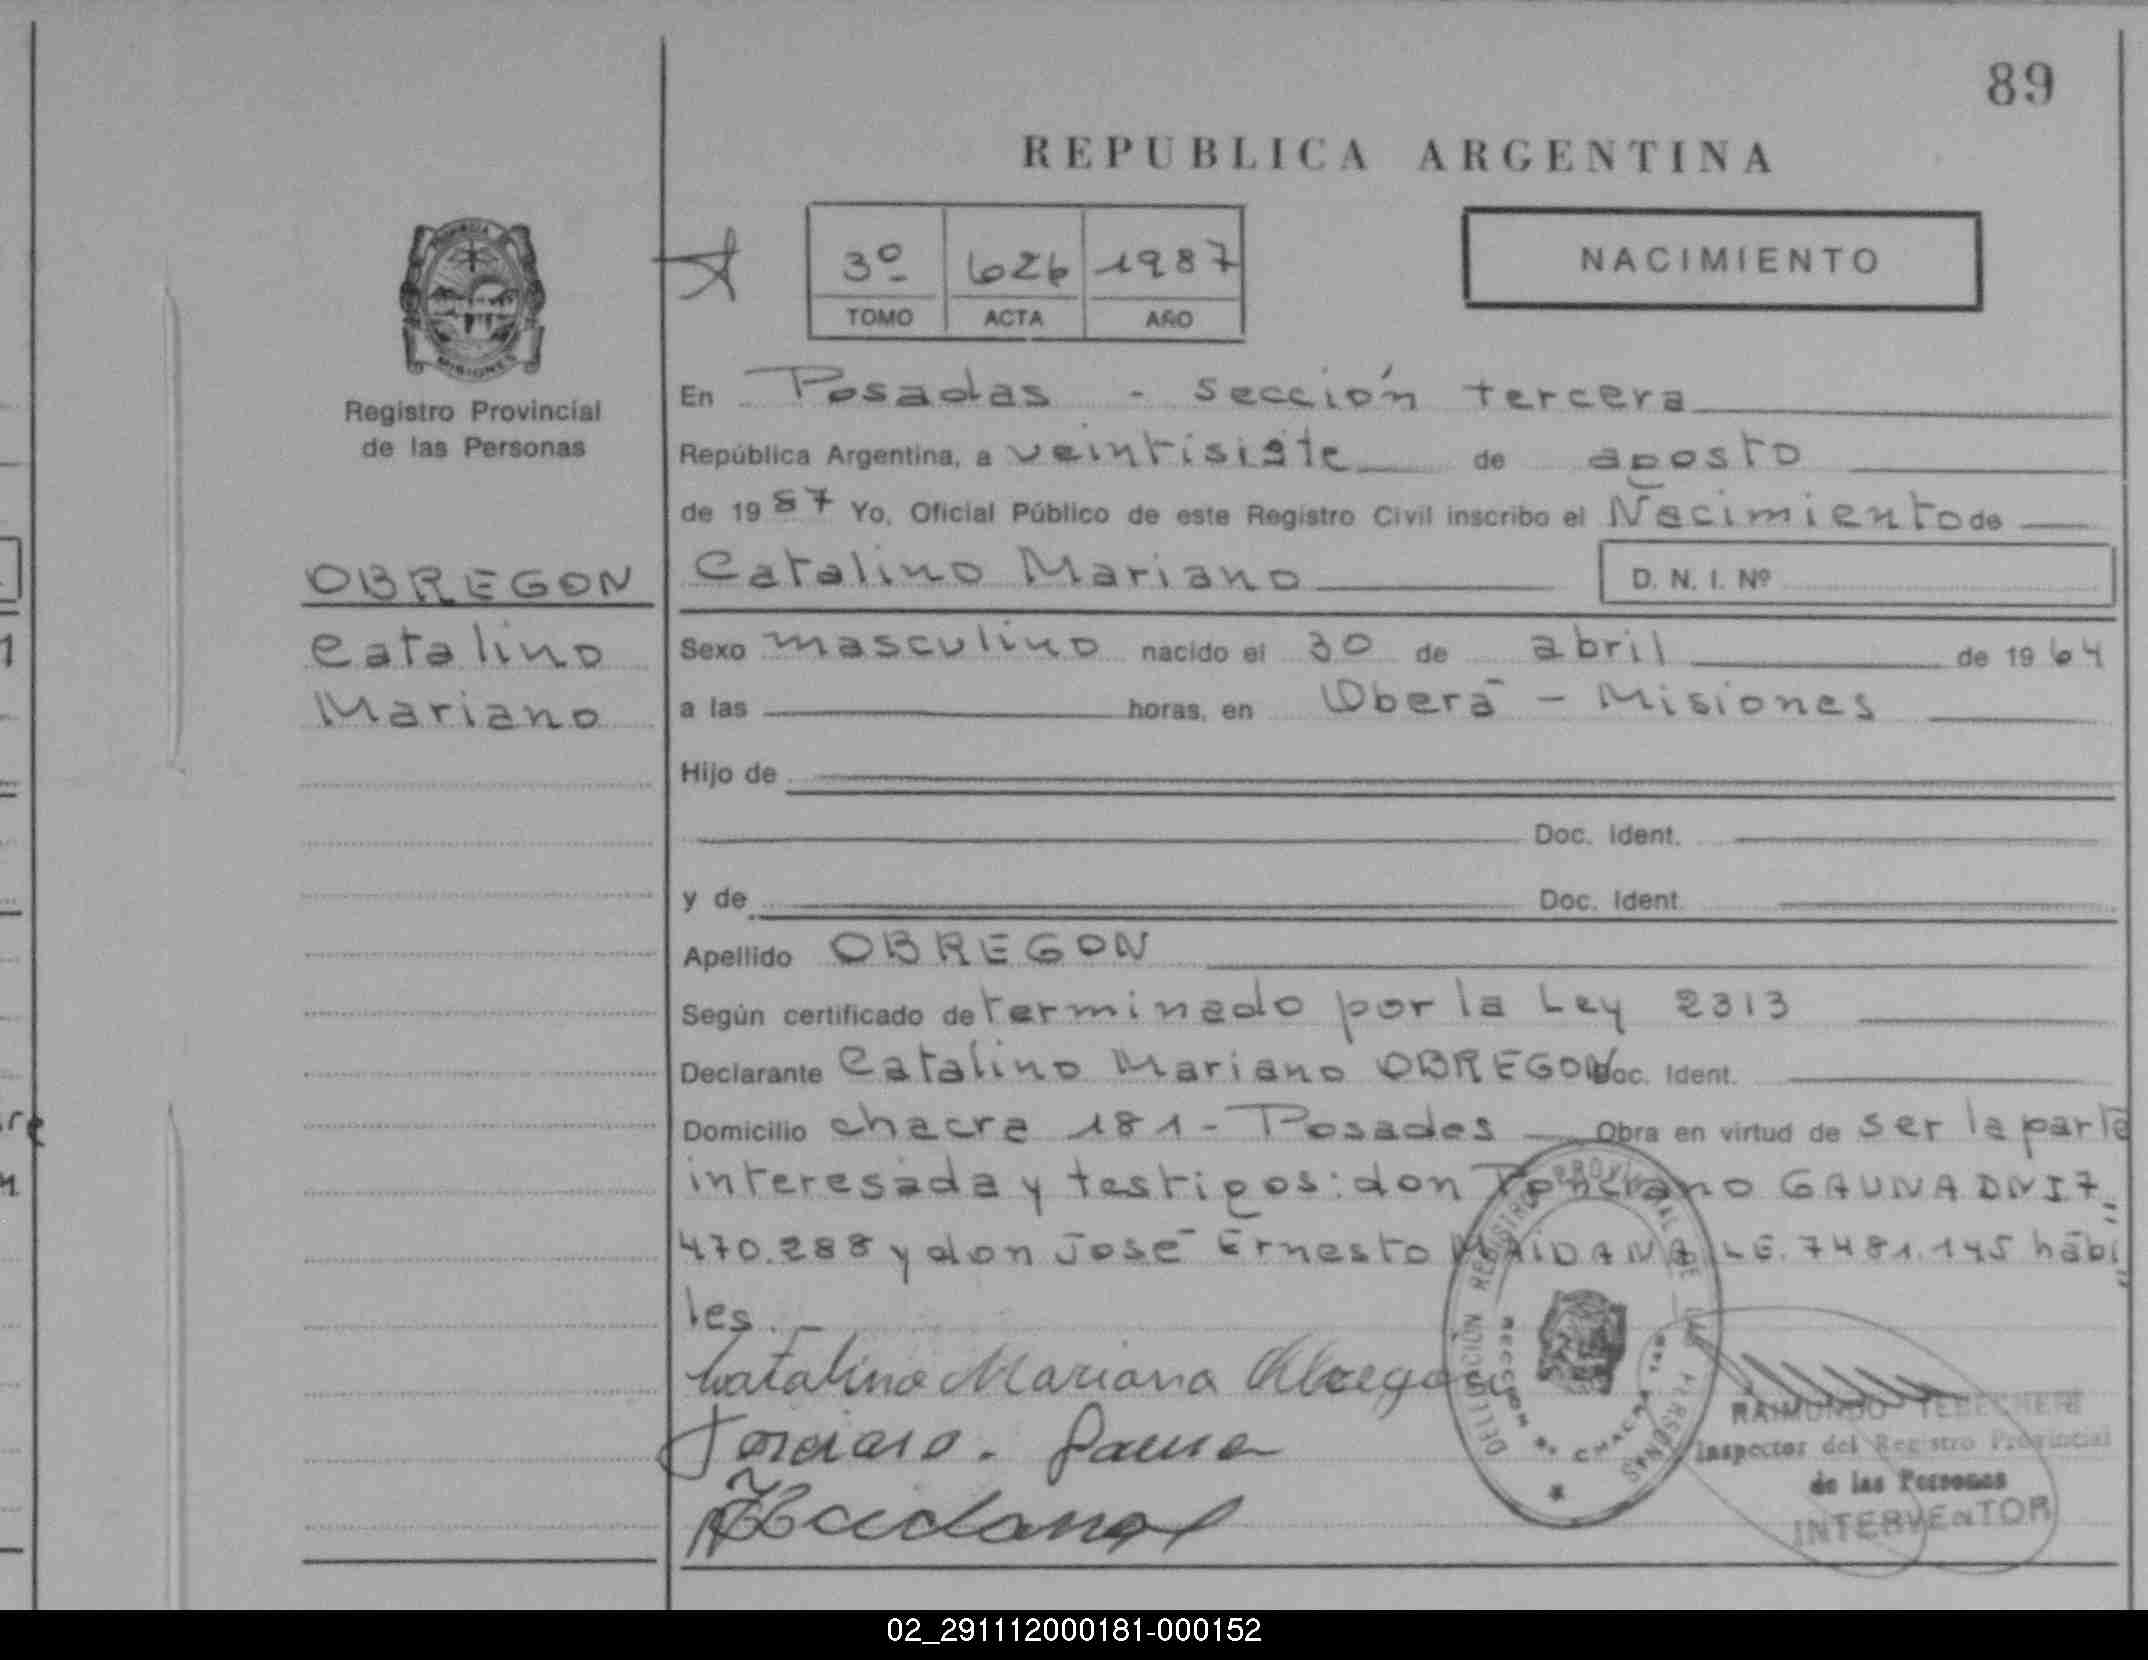 89
REPUBLICA ARGENTINA
3º 626 1987
TOMO ACTA AÑO
NACIMIENTO
MISIONES
Registro Provincial
de las Personas
En Posadas - sección tercera
República Argentina, a veintisiete de agosto
de 1987 Yo, Oficial Público de este Registro Civil inscribo el Nacimiento de
OBREGON
Catalino Mariano
D. N. I. Nº
Catalino
Mariano
Sexo masculino nacido el 30 de abril de 1964
a las horas, en Oberá - Misiones
Hijo de
Doc. Ident.
y de Doc. Ident.
Apellido OBREGON
Según certificado determinado por la Ley 2313
Declarante Catalino Mariano OBREGON Doc. Ident.
Domicilio chacra 181 - Posadas Obra en virtud de ser la parte
interesada y testigos: don GAUNA DNI 7.
470.288 y don José Ernesto MAIDANA LE. 7481.145 hábi
les.-
Catalino Mariano Obregon
Gauna
Maidana
DELEGACIÓN REGISTRO PROVINCIAL DE LAS PERSONAS
SECCION 3ª CHACRA 149
RAIMUNDO
Inspector del Registro Provincial
de las Personas
INTERVENTOR
re
02_291112000181-000152